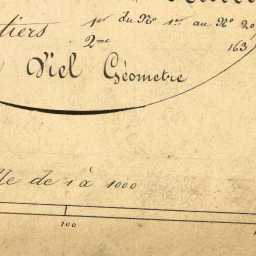 tiers 1er du No 1er au No 20
2me 163
Viel Géometre
lle de 1 à 1000
100